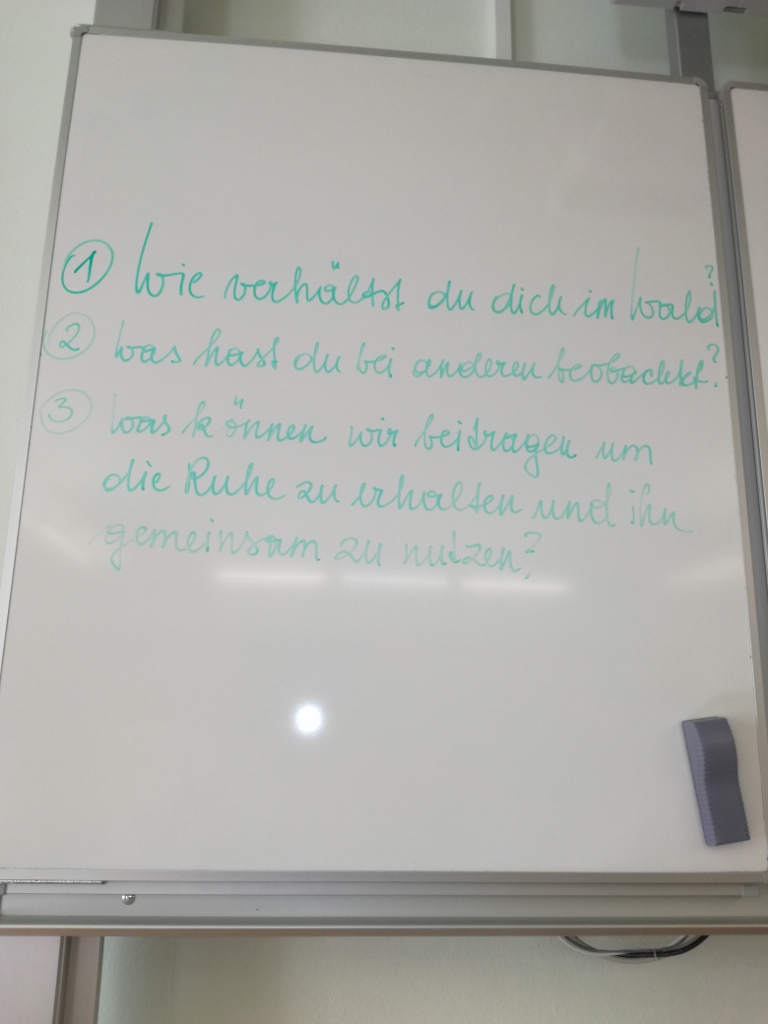 ① Wie verhältst du dich im Wald?
② Was hast du bei anderen beobachtet?
③ Was können wir beitragen um
die Ruhe zu erhalten und ihn
gemeinsam zu nutzen?